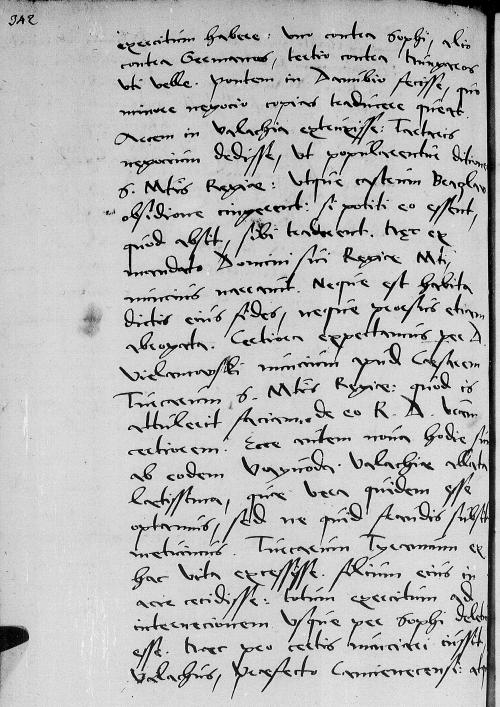 342
exercitum habere: uno contra Sophi, alio
contra Germanos, tertio contra Hungaros
uti velle. Pontem in Danubio fecisse, quo
minore negocio copias traducere queat.
Arcem in Valachia extruxisse: Tartaris
negocium dedisse, ut popularentur ditione
S. Mtis Regiae: utque castrum Braglaw
obsidione cingerent: si potiti eo essent,
quod absit, sibi traderent. Haec ex
mandato Domini sui Regiae Mti,
nuncius narravit. Neque est habita
dictis eius fides, neque prorsus etiam
abrogata. Certiora expectamus per D.
Vielamowski nuncium apud Caesarem
Turcarum S. Mtis Regiae: quod is
attulerit faciam, de eo R. D. Vram
certiorem. Ecce autem nova hodie sunt
ab eodem Voyvoda Valachiae allata
laetissima, quae vera quidem esse
optamus, sed ne quid fraudis subsit
metuimus. Turcarum Tyrannum ex
hac vita excessisse. filium eius in
acie cecidisse: totum exercitum ad
internecionem usque per Sophi deletum
esse. Haec pro certis nunciari iussit
Valachus, Praefecto Camienecensi: atque